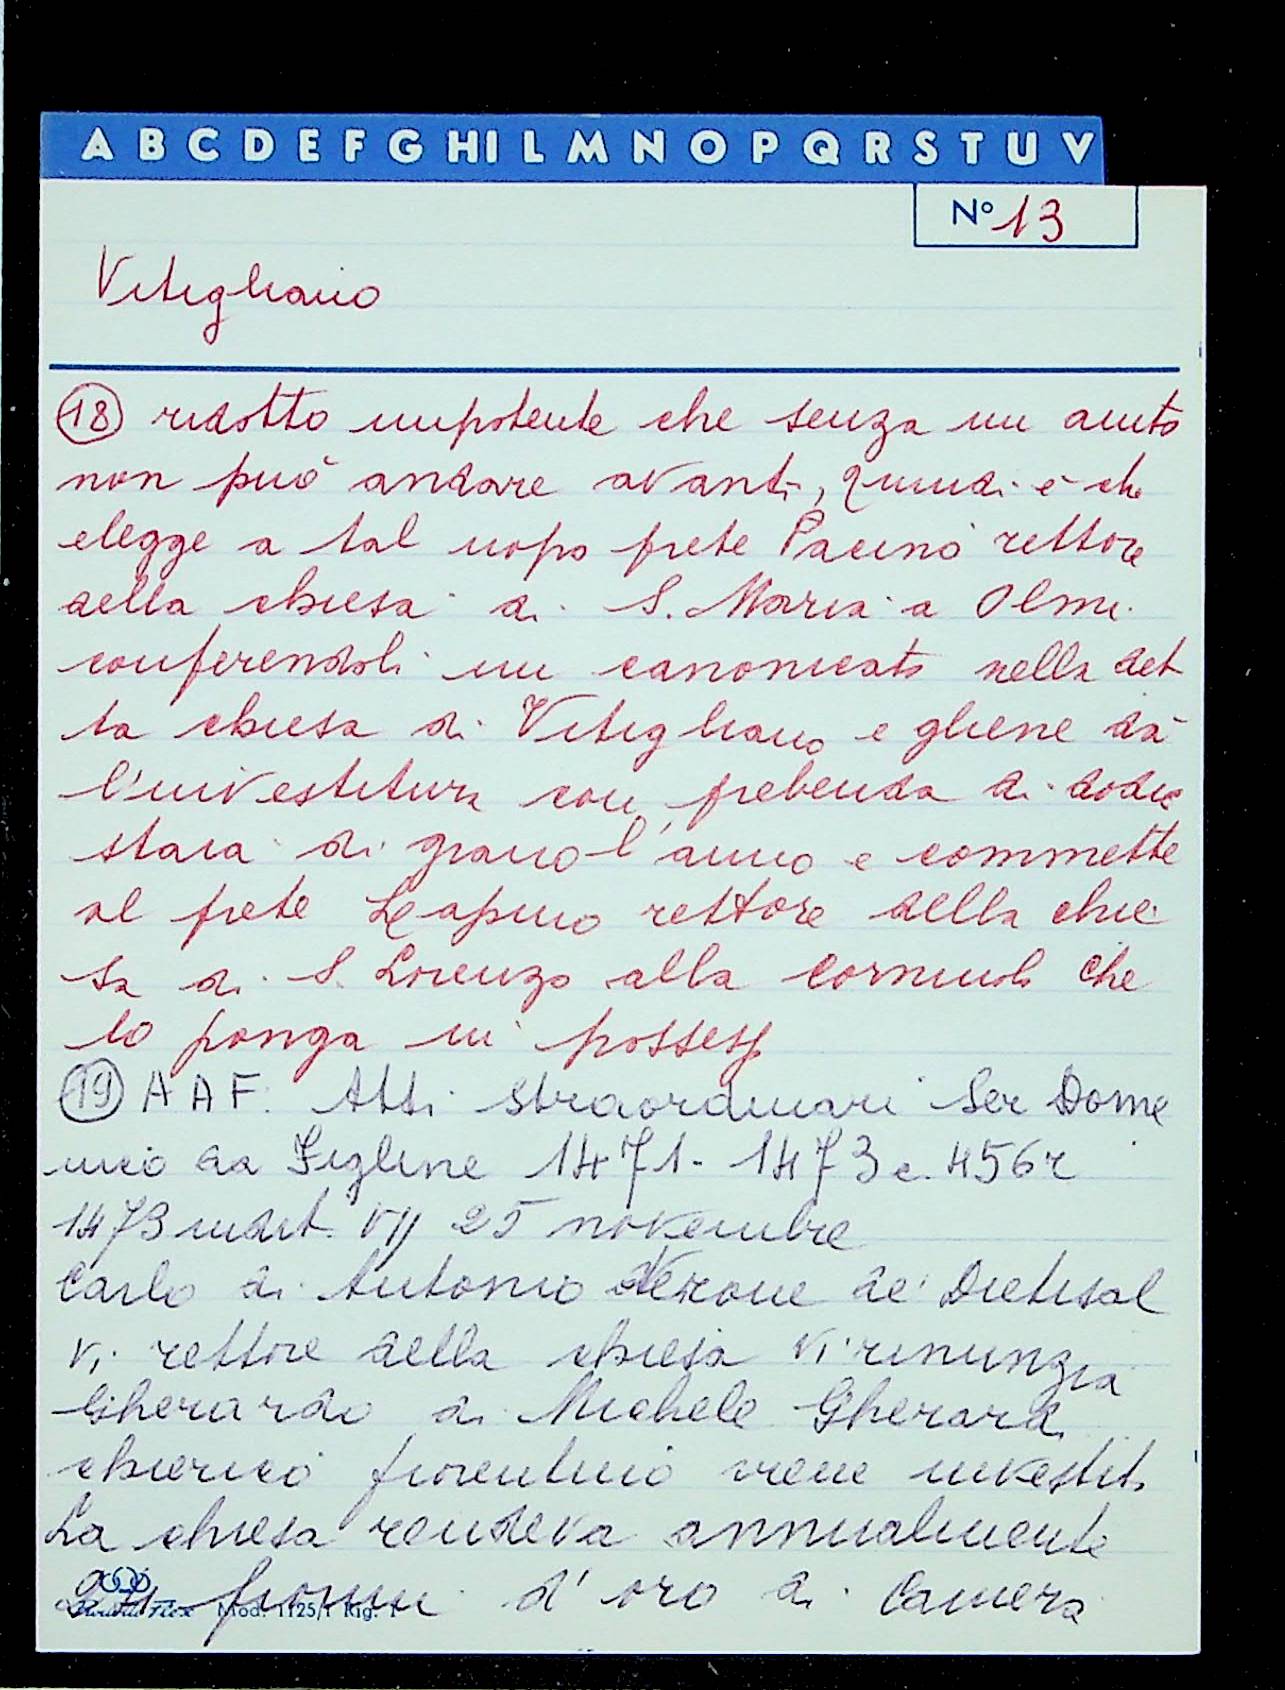 A B C D E F G HI L M N O P Q R S T U V
Nº 13
Vitigliano
18 ridotto impotente che senza un aiuto
non può andare avanti, quindi è che
elegge a tal uopo prete Pacino rettore
della chiesa di S. Maria a Olmi
conferendoli un canonicato nella det
ta chiesa di Vitigliano e gliene dà
l'investitura con prebenda di dodic
staia di grano l'anno e commette
al prete Lapino rettore della chie
sa di S. Lorenzo alla Cornioli che
lo ponga in possess
19 A A F. Atti straordinari Ser Dome
nico da Figline 1471-1473 c. 456r
1473 indit. VII 25 novembre
Carlo di Antonio Nerone de' Dietisal
vi rettore della chiesa vi rinunzia
Gherardo di Michele Gherardi
chierico fiorentino viene investito
La chiesa rendeva annualmente
fiorini d'oro di Camera
Mod. 1125/1 Rig. 1